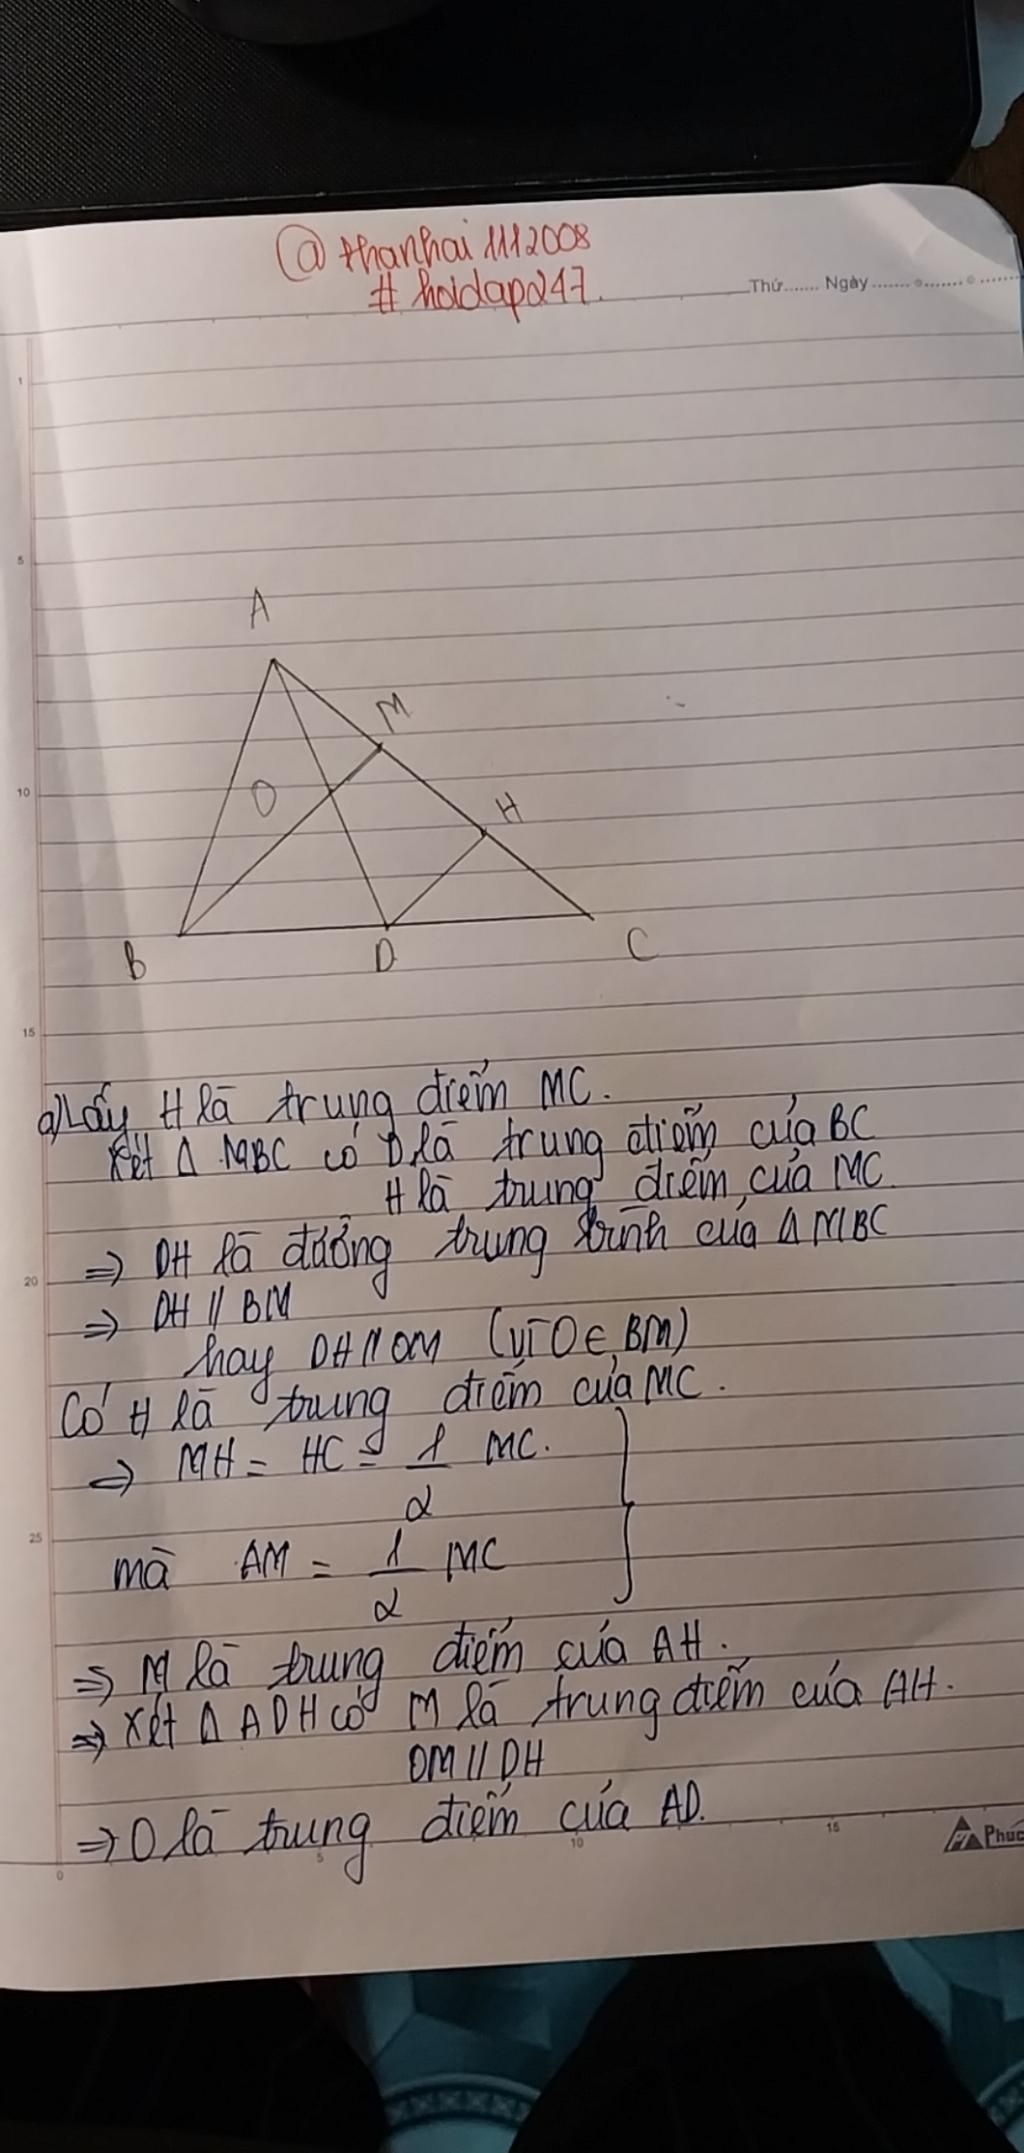 @ thanhhai1112008
# hoidap247.
Thứ....... Ngày
1
5
A
M
10
O
H
B
D
C
15
a) Lấy H là trung điểm MC.
Xét Δ MBC có D là trung điểm của BC
H là trung điểm của MC.
⇒ DH là đường trung bình của Δ MBC
20
⇒ DH // BM
hay DH // OM (vì O ∈ BM)
Có H là trung điểm của MC.
⇒ MH = HC = 1/2 MC.
25
mà AM = 1/2 MC
⇒ M là trung điểm của AH.
⇒ Xét Δ ADH có M là trung điểm của AH.
OM // DH
⇒ O là trung điểm của AD.
0 5 10 15